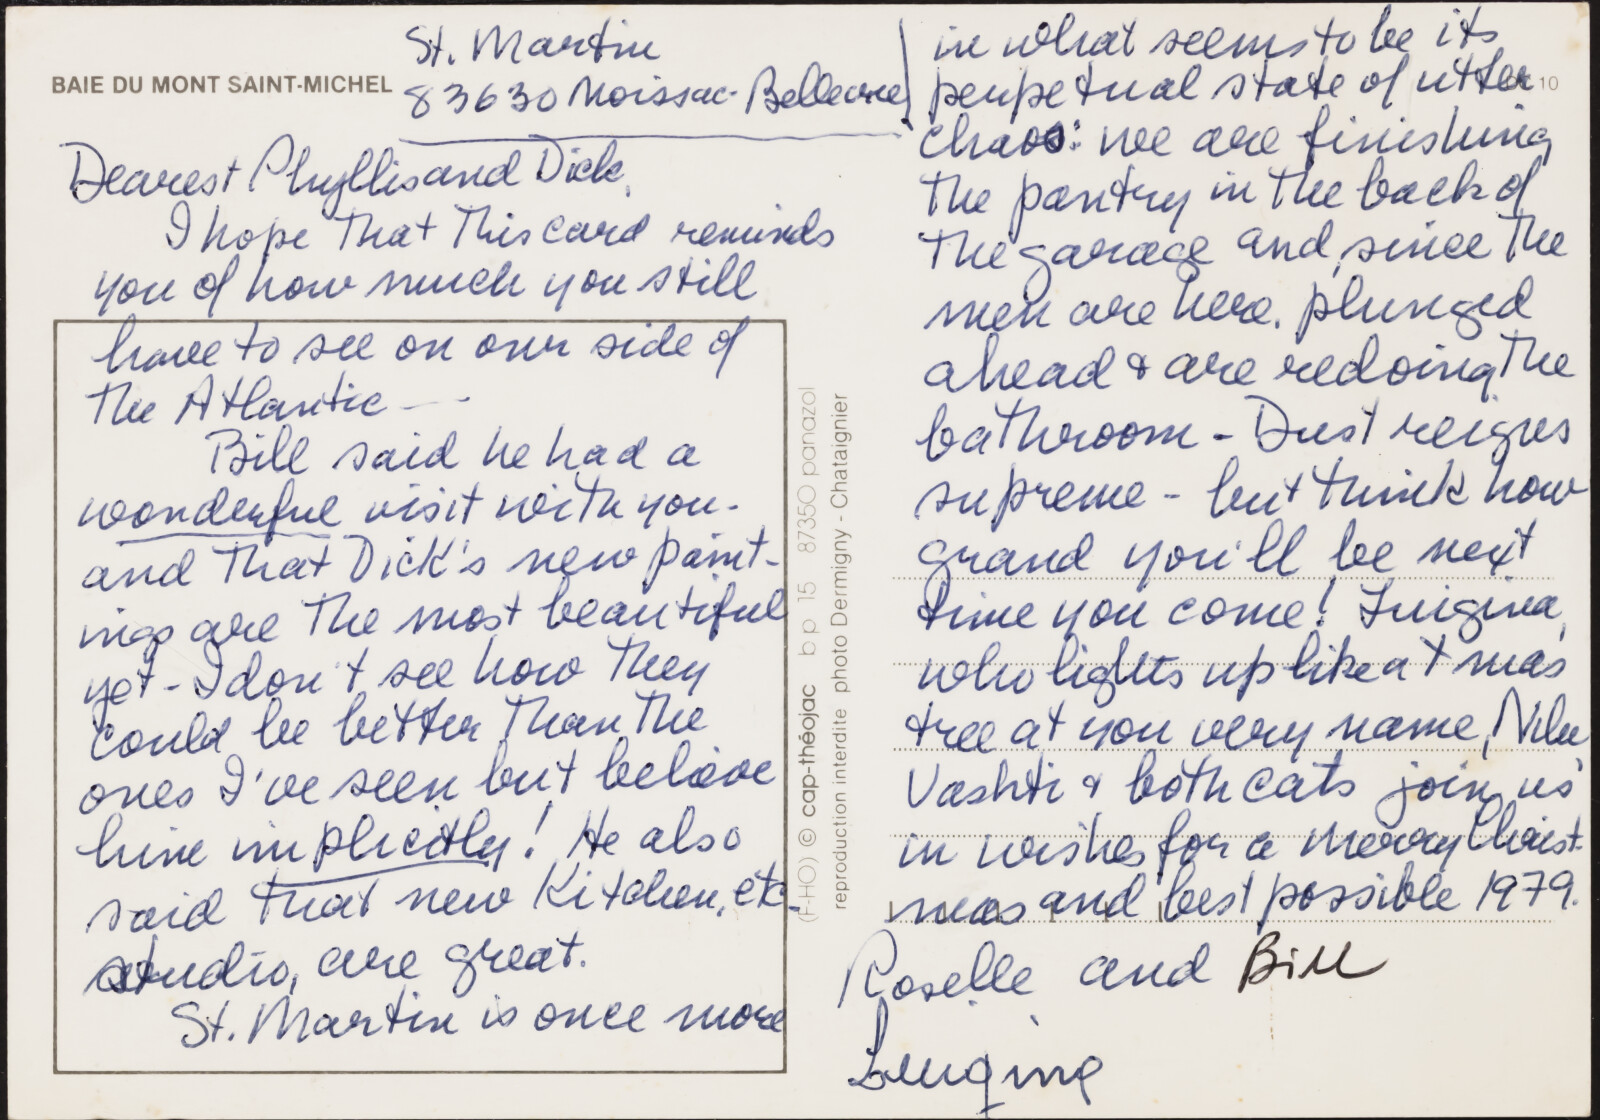 BAIE DU MONT SAINT-MICHEL
St. Martin
83630 Moissac-Bellevue
Dearest Phyllis and Dick,
I hope that this card reminds
you of how much you still
have to see on our side of
the Atlantic —
Bill said he had a
wonderful visit with you -
and that Dick's new paint-
ings are the most beautiful
yet - I don't see how they
could be better than the
ones I've seen but believe
him implicitly! He also
said that new kitchen, etc.
studio, are great.
St. Martin is once more
in what seems to be its
perpetual state of utter
chaos: we are finishing
the pantry in the back of
the garage and, since the
men are here, plunged
ahead & are redoing the
bathroom - Dust reigns
supreme - but think how
grand you'll be next
time you come! Luigina,
who lights up like a Xmas
tree at you very name,
Vashti & both cats join us
in wishes for a Merry Christ-
mas and best possible 1979.
Roselle and Bill
10
(F-HO) © cap-théojac bp 15 87350 panazol
reproduction interdite photo Dermigny - Chataignier